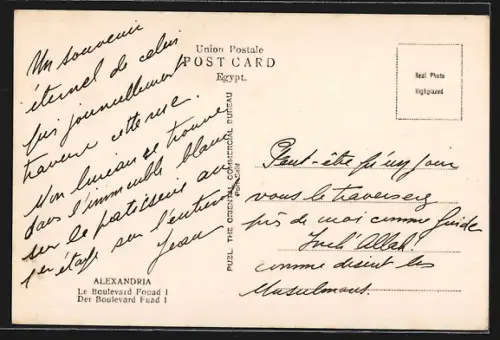 Union Postale
POST CARD
Egypt.
Real Photo
Highglazed
Un souvenir
éternel de celui
qui journellement
traverse cette rue.
Mon bureau se trouve
dans l'immeuble blanc
sur la patisserie au
1er étage sur l'entresol
Jean
ALEXANDRIA
Le Boulevard Fouad I
Der Boulevard Fuad I
PUBL. THE ORIENTAL COMMERCIAL BUREAU
Port-Said
Peut-être qu'un jour
vous le traverserez
près de moi comme guide
Inch' Allah!
comme disent les
Musulmans.